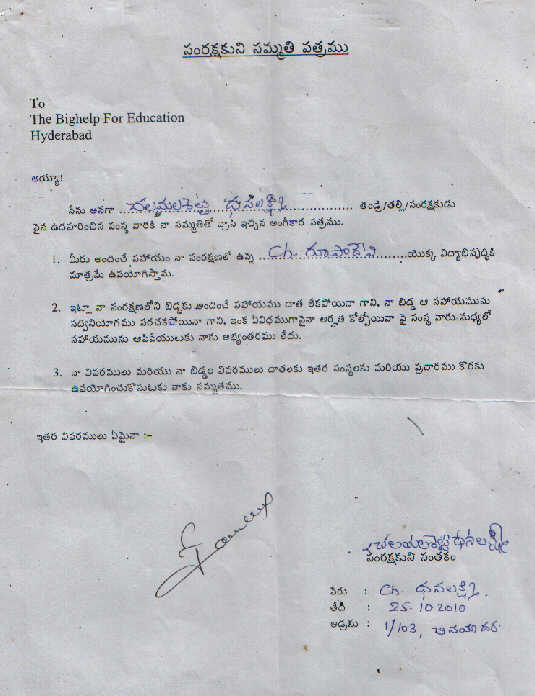 సంరక్షకుని సమ్మతి పత్రము
To
The Bighelp For Education
Hyderabad
అయ్యా!
నేను అనగా ........ ధనలక్ష్మి ........ తండ్రి/తల్లి/సంరక్షకుడు
పైన ఉదహరించిన సంస్థ వారికి నా సమ్మతితో వ్రాసి ఇచ్చిన అంగీకార పత్రము.
1. మీరు అందించే సహాయం నా సంరక్షణలో ఉన్న ...Ch. రూపాదేవి........యొక్క విద్యాభివృద్ధికి
మాత్రమే ఉపయోగిస్తాను.
2. ఇట్లా నా సంరక్షణలోని బిడ్డకు అందించే సహాయము దాత లేకపోయినా గాని, నా బిడ్డ ఆ సహాయమును
సద్వినియోగము పరచకపోయినా గాని, ఇంక ఏవిధముగానైనా అర్హత కోల్పోయినా పై సంస్థ వారు మధ్యలో
సహాయమును ఆపివేయుటకు నాకు అభ్యంతరము లేదు.
3. నా వివరములు మరియు నా బిడ్డల వివరములు దాతలకు ఇతర సంస్థలకు మరియు ప్రచారము కొరకు
ఉపయోగించుకొనుటకు నాకు సమ్మతము.
ఇతర వివరములు ఏమైనా :-
సంరక్షకుని సంతకం
పేరు : Ch. ధనలక్ష్మి.
తేదీ : 25-10 2010
అడ్రసు : 1/103,